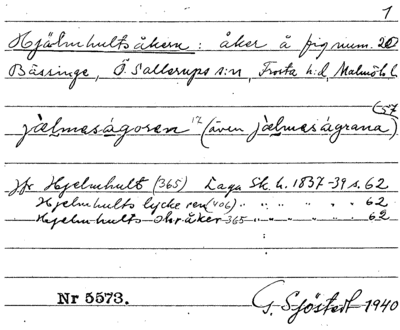 1
Hjälmhultsåkern: åker å fig num. 20
Bässinge, Ö. Sallerups s:n, Frosta h:d, Malmöh. l
57
jælmaságoren 12 (även jælmaságrana)
jfr Hjelmhult (365) Laga Sk. h. 1837-39 s. 62
Hjelmhults lycke ren (406) " " " " 62
Hjelmhults åker 365 " " " " 62
Nr 5573.
G. Sjöstedt 1940